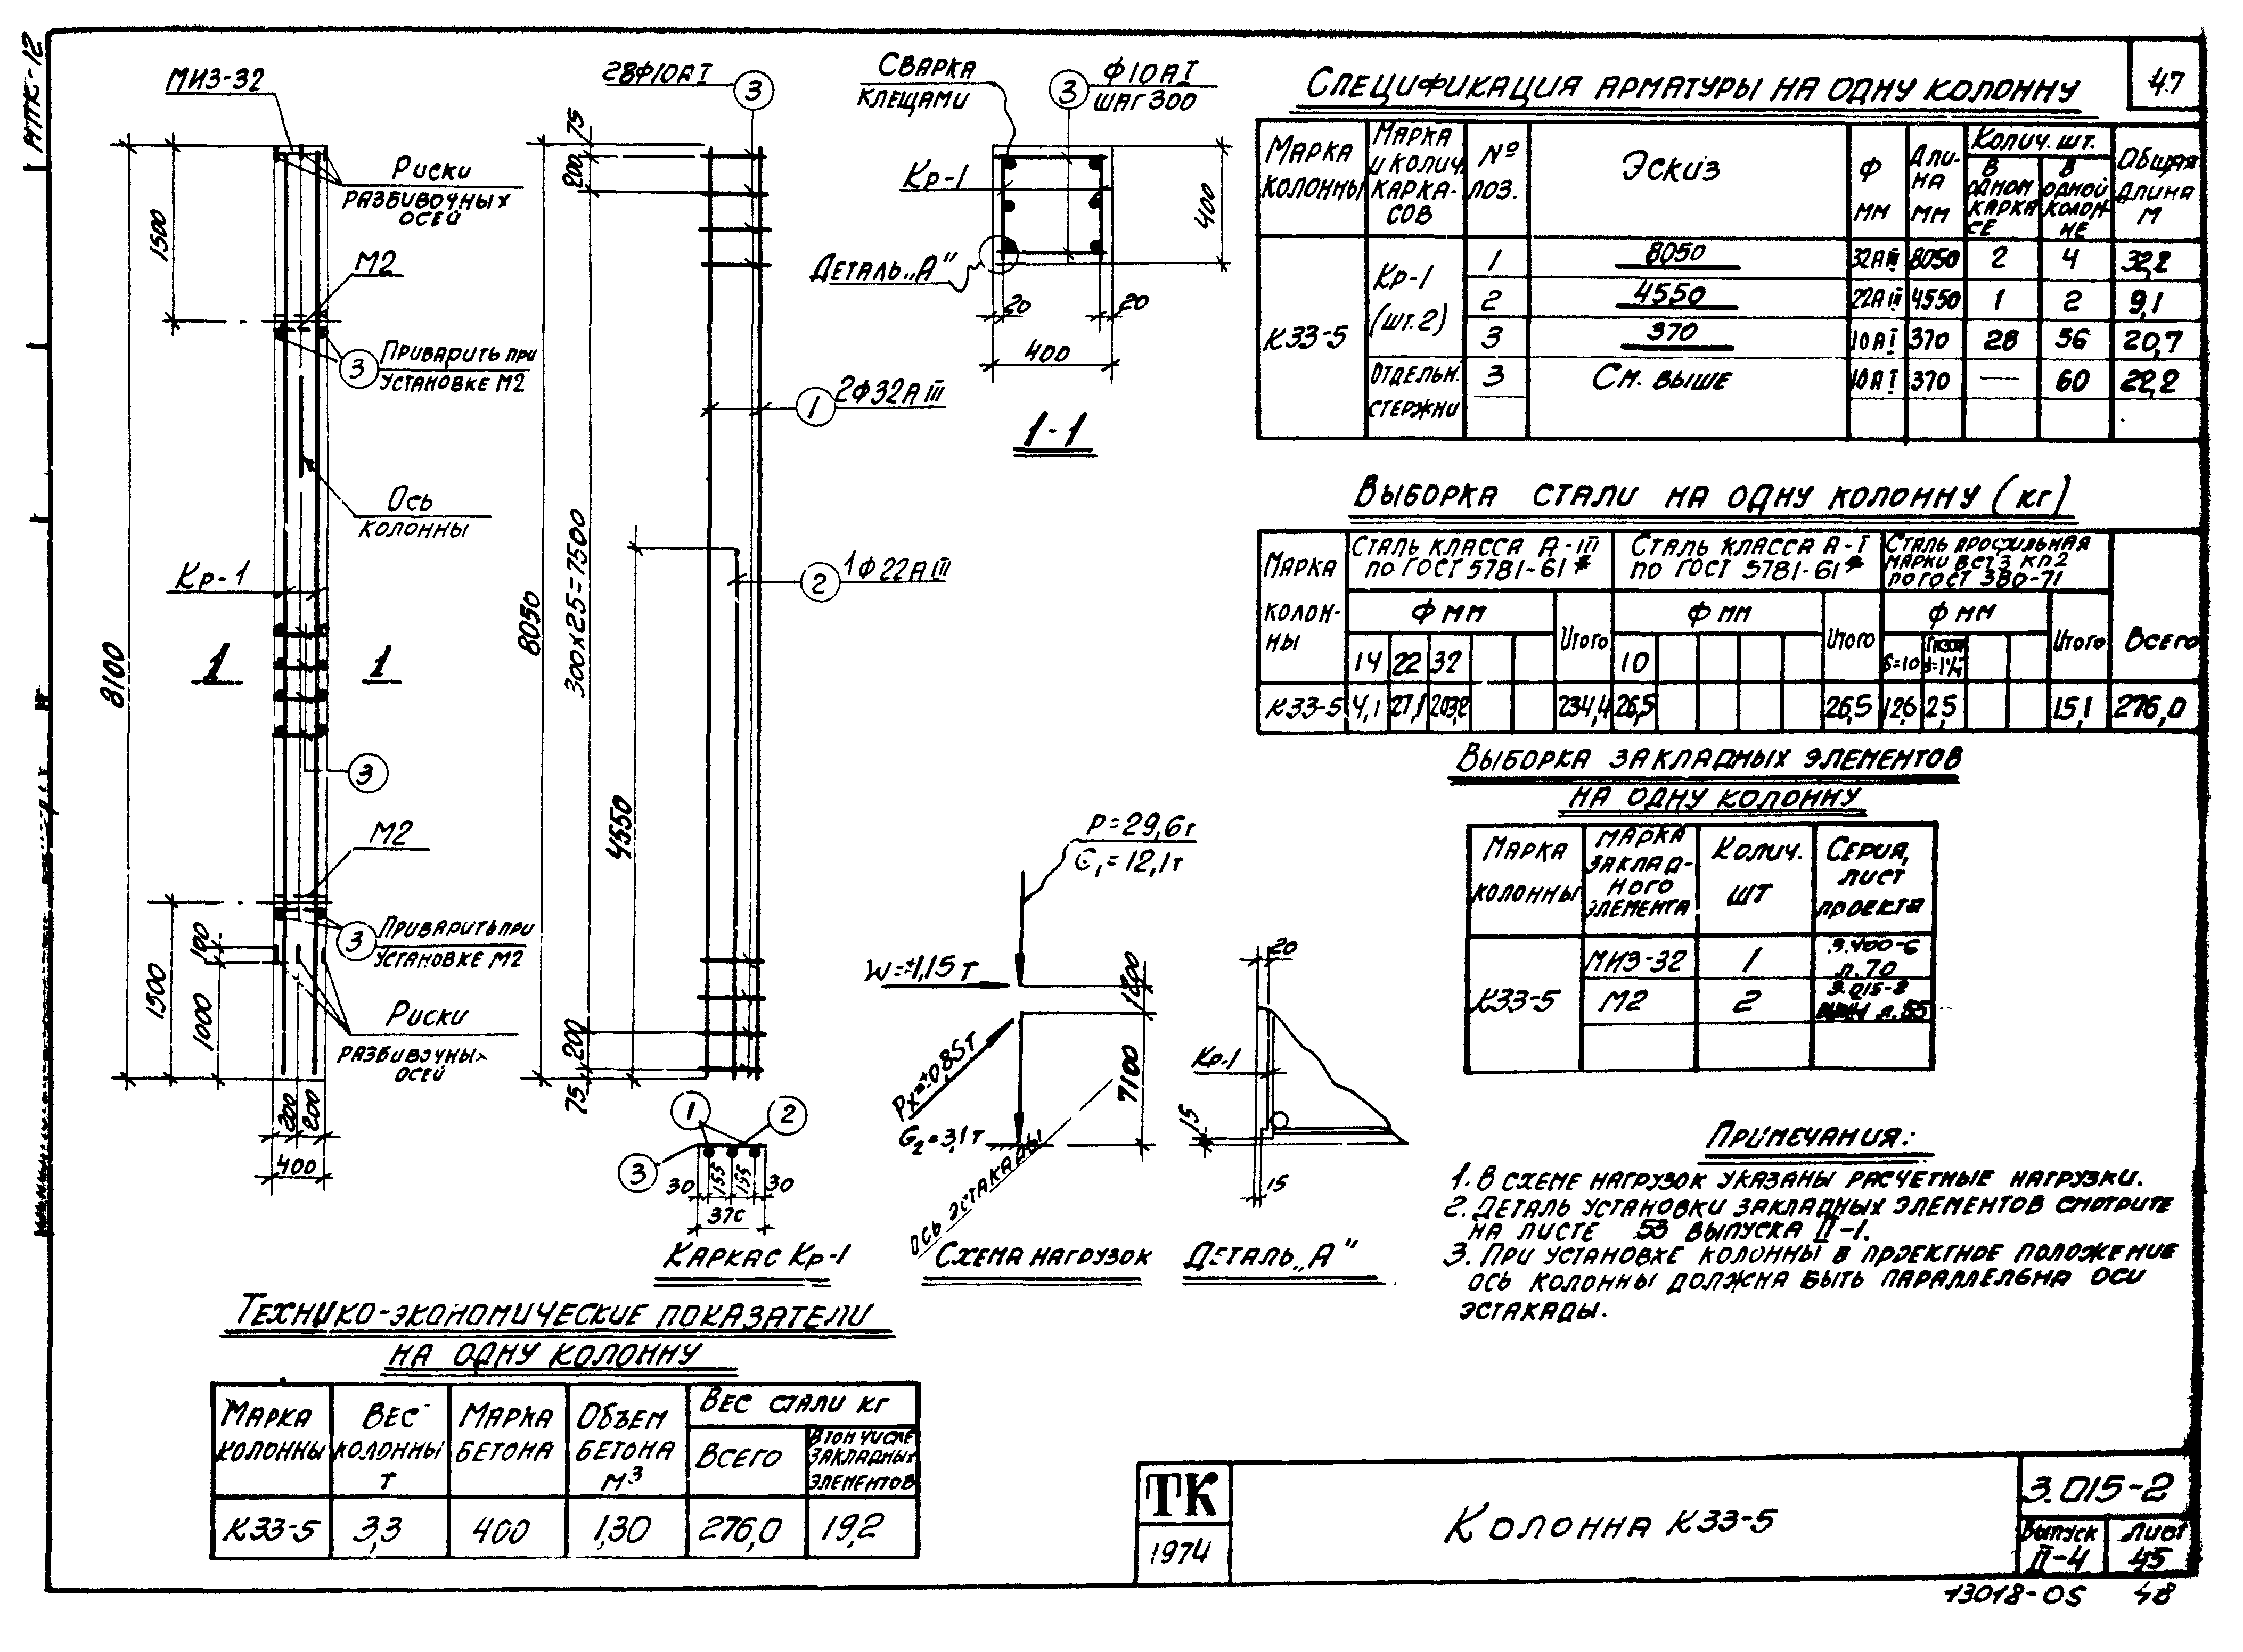 47
МИЗ-32
Риски
разбивочных
осей
1500
М2
3
Приварить при
установке М2
Ось
колонны
Кр-1
8100
1
1
3
М2
3
Приварить при
установке М2
100
1500
1000
Риски
разбивочных
осей
200
200
400
28Ф10АI
3
75
200
8050
300х25=7500
1
2Ф32АIII
2
1Ф22АIII
4550
200
75
1
2
3
30
155
155
30
Каркас Кр-1
Сварка
клещами
3
Ф10АI
шаг 300
Кр-1
400
Деталь „А"
20
20
400
1-1
Р=29,6т
G₁=12,1т
W=±1,15т
1200
Рх=±0,85т
7100
G₂=3,1т
Ось эстакады
Схема нагрузок
20
Кр-1
15
15
Деталь „А"
Спецификация арматуры на одну колонну
Марка колонны
Марка и колич. каркасов
№ поз.
Эскиз
Ф мм
Длина мм
Колич. шт.
В одном каркасе
В одной колонне
Общая длина м
К33-5
Кр-1 (шт.2)
1 8050 32АIII 8050 2 4 32,2
2 4550 22АIII 4550 1 2 9,1
3 370 10АI 370 28 56 20,7
Отдельн. стержни
3 См. выше 10АI 370 — 60 22,2
Выборка стали на одну колонну (кг)
Марка колонны
Сталь класса А-III
по ГОСТ 5781-61*
Сталь класса А-I
по ГОСТ 5781-61*
Сталь профильная
марки ВСт3 кп2
по ГОСТ 380-71
Всего
Ф мм
Итого
Ф мм
Итого
Ф мм
Итого
14 22 32
10
δ=10
К33-5 4,1 27,1 203,2 234,4 26,5 26,5 12,6 2,5 15,1 276,0
Выборка закладных элементов
на одну колонну
Марка колонны
Марка закладного элемента
Колич. шт
Серия, лист проекта
К33-5
МИЗ-32 1 3.400-6 л.70
М2 2 3.015-2 л.55
Примечания:
1. В схеме нагрузок указаны расчетные нагрузки.
2. Деталь установки закладных элементов смотрите
на листе 53 выпуска II-1.
3. При установке колонны в проектное положение
ось колонны должна быть параллельна оси
эстакады.
Технико-экономические показатели
на одну колонну
Марка колонны
Вес колонны т
Марка бетона
Объем бетона м³
Вес стали кг
Всего
В том числе закладных элементов
К33-5 3,3 400 1,30 276,0 19,2
ТК
1974
Колонна К33-5
3.015-2
Выпуск
II-4
Лист
45
13018-05 48